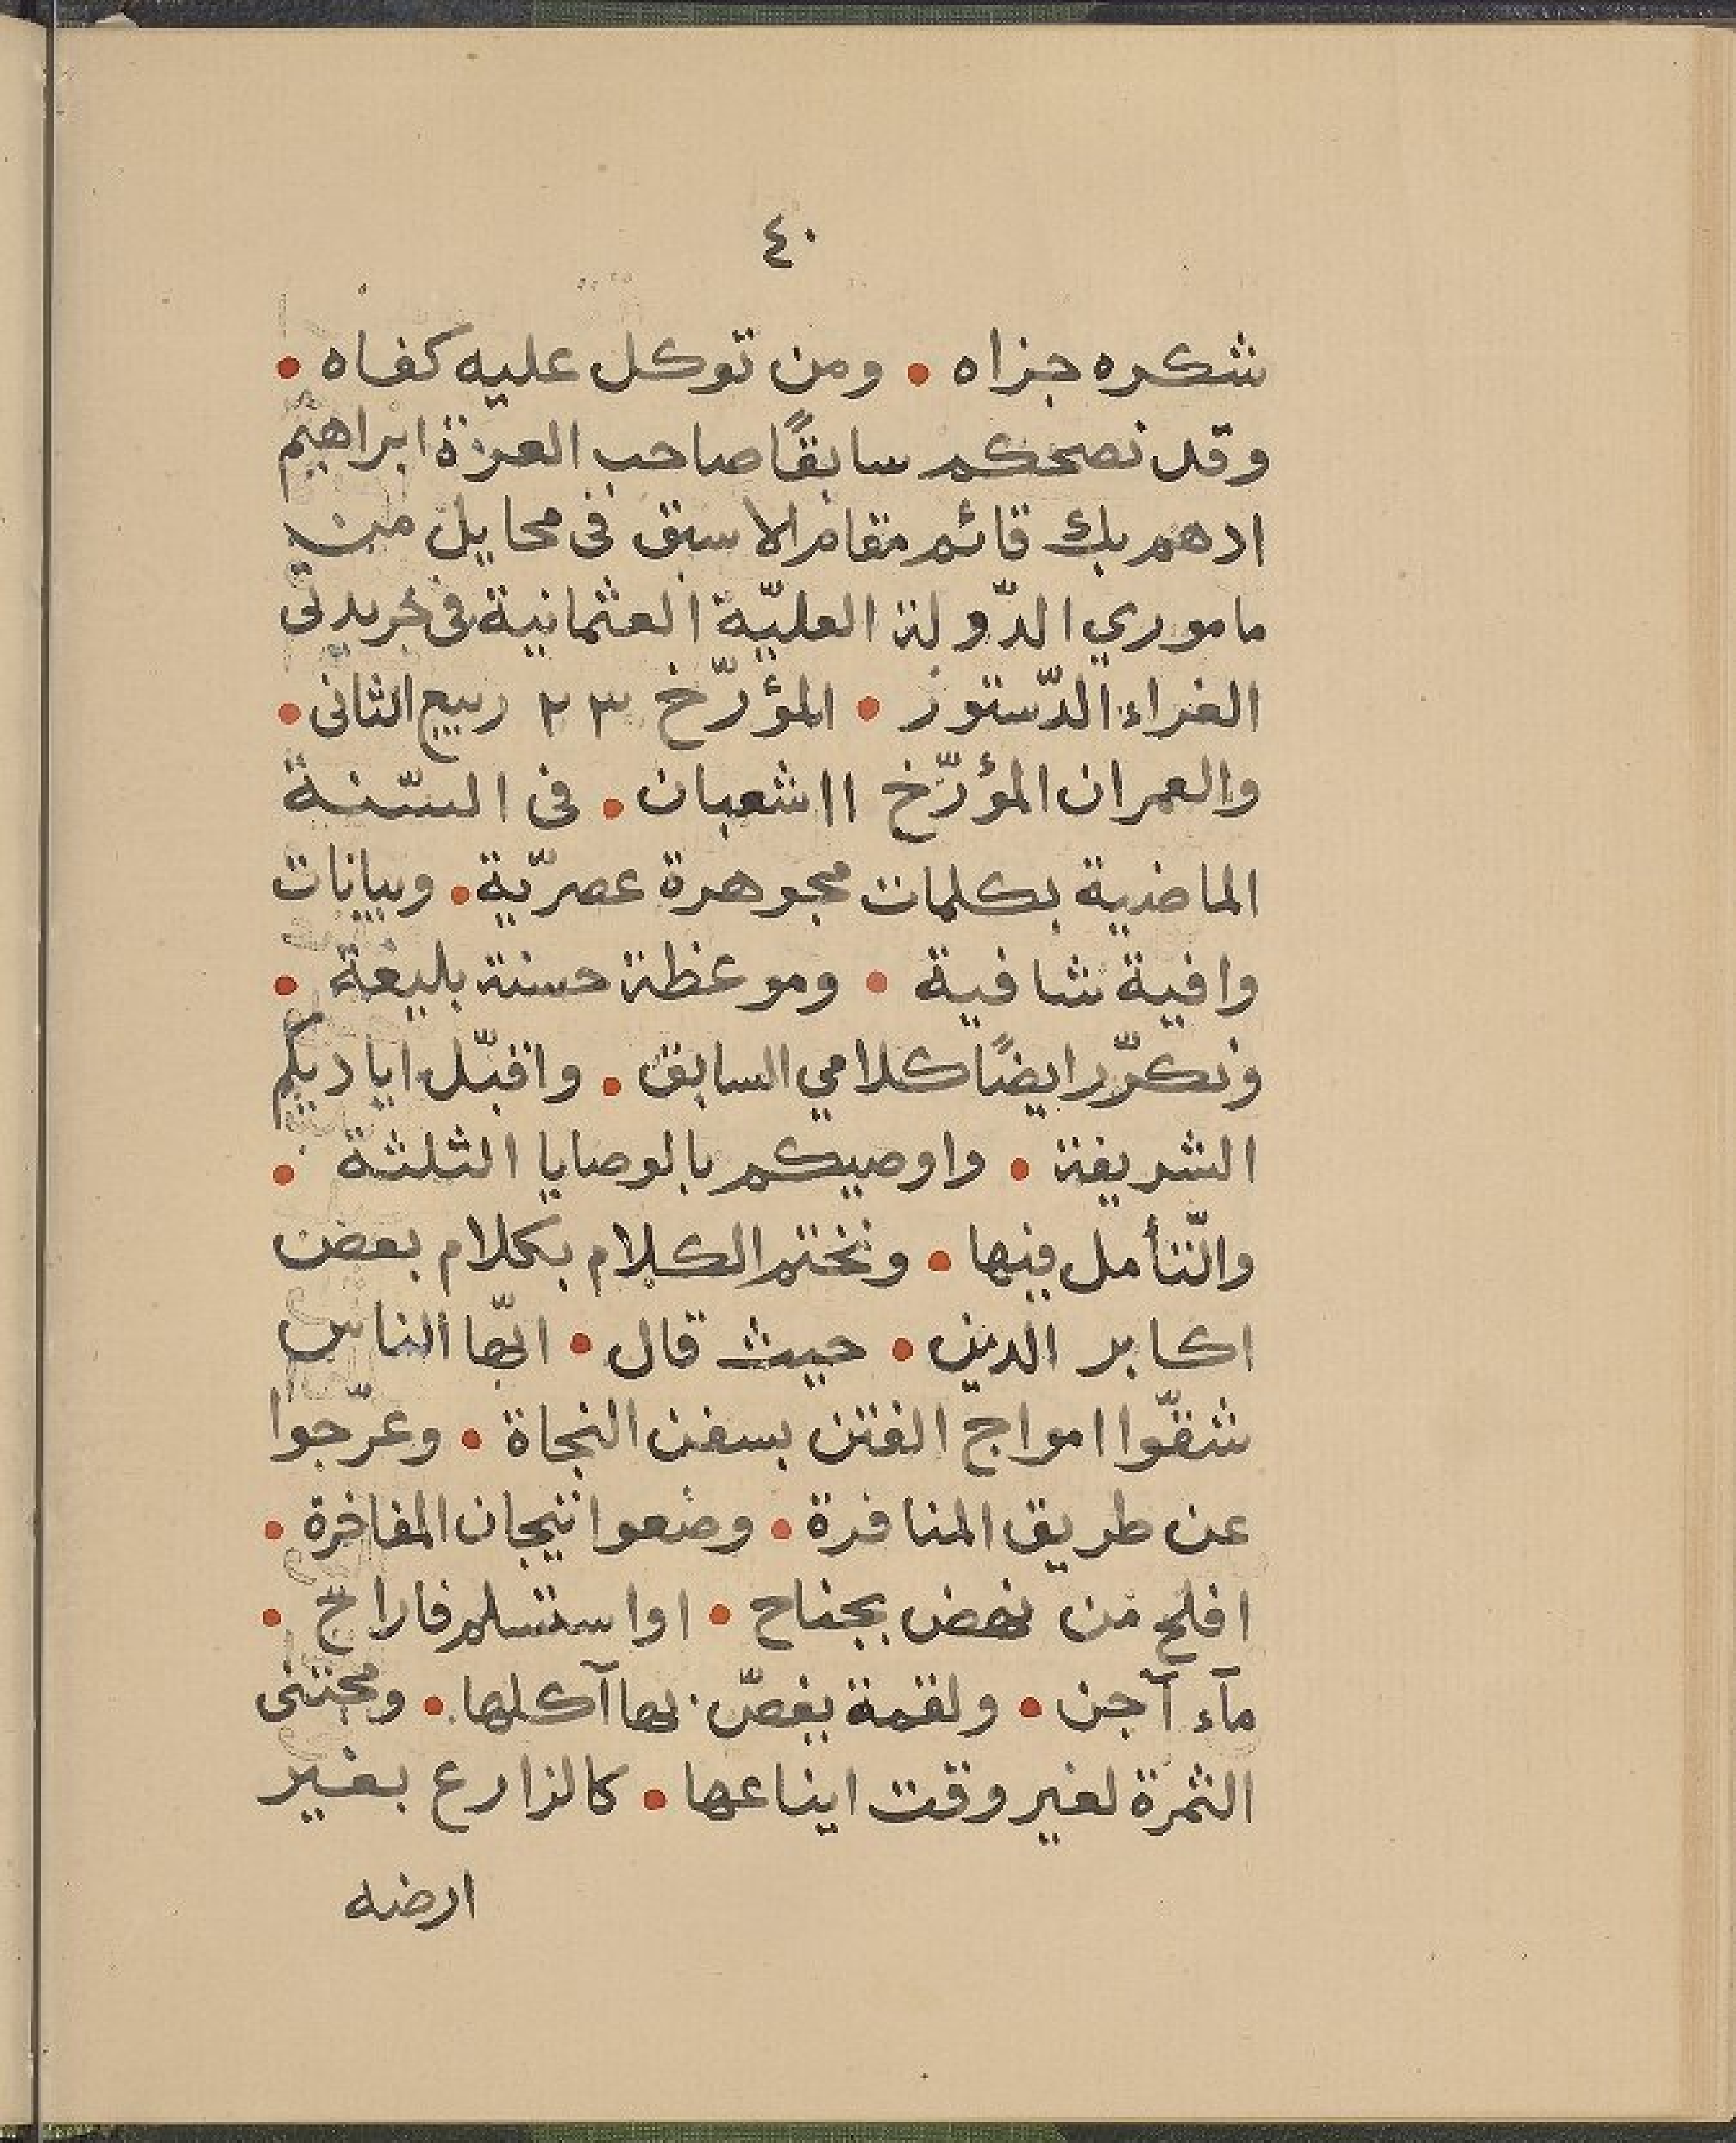 ٤٠
شكره جزاه • ومن توكل عليه كفاه •
وقد نصحكم سابقًا صاحب العزة ابراهيم
ادهم بك قائم مقام الاسبق فى محايل من
ماموري الدّولة العليّة العثمانية فى جريدتى
الغراء الدّستور • المؤرّخ ٢٣ ربيع الثانى •
والعمران المؤرّخ ١١ شعبان • فى السّنة
الماضية بكلمات مجوهرة عصريّة • وبيانات
وافية شافية • وموعظة حسنة بليغة •
ونكرّر ايضًا كلامي السابق • واقبّل اياديكم
الشريفة • واوصيكم بالوصايا الثلثة •
والتّأمل فيها • ونختم الكلام بكلام بعض
اكابر الدين • حيث قال • ايّها الناس
شقّوا امواج الفتن بسفن النجاة • وعرّجوا
عن طريق المنافرة • وضعوا تيجان المفاخرة •
افلح من نهض بجناح • اواستسلم فاراح •
مآء آجن • ولقمة يغصّ بها آكلها • ومجتنى
الثمرة لغير وقت ايناعها • كالزارع بغير
ارضه